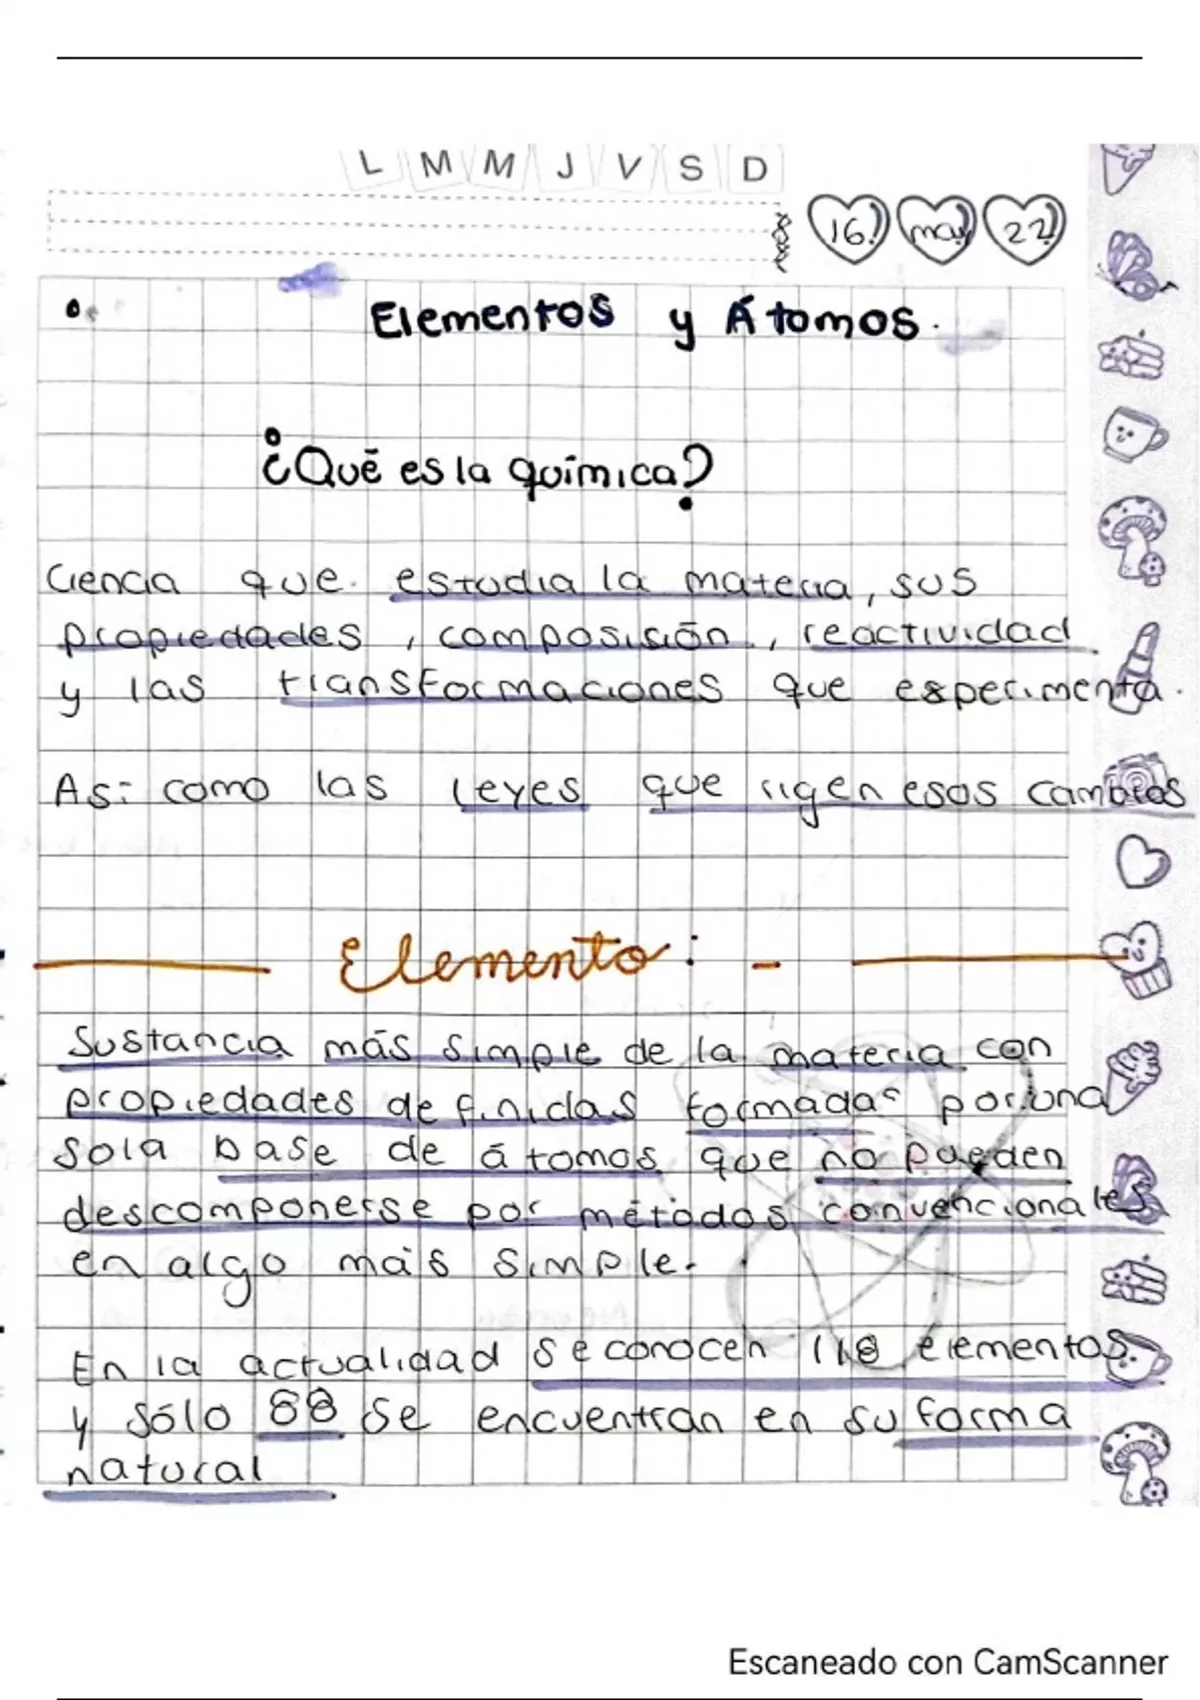 L M M J V S D
16 may 22
Elementos y Átomos.
¿Qué es la química?
Ciencia que estudia la materia, sus
propiedades, composisión, reactividad
y las transformaciones que experimenta.
Así como las leyes que rigen esos cambios
Elemento:
Sustancia más simple de la materia con
propiedades definidas formadas por una
sola base de átomos que no pueden
descomponerse por métodos convencionales
en algo más simple.
En la actualidad se conocen 118 elementos
y sólo 88 se encuentran en su forma
natural
Escaneado con CamScanner